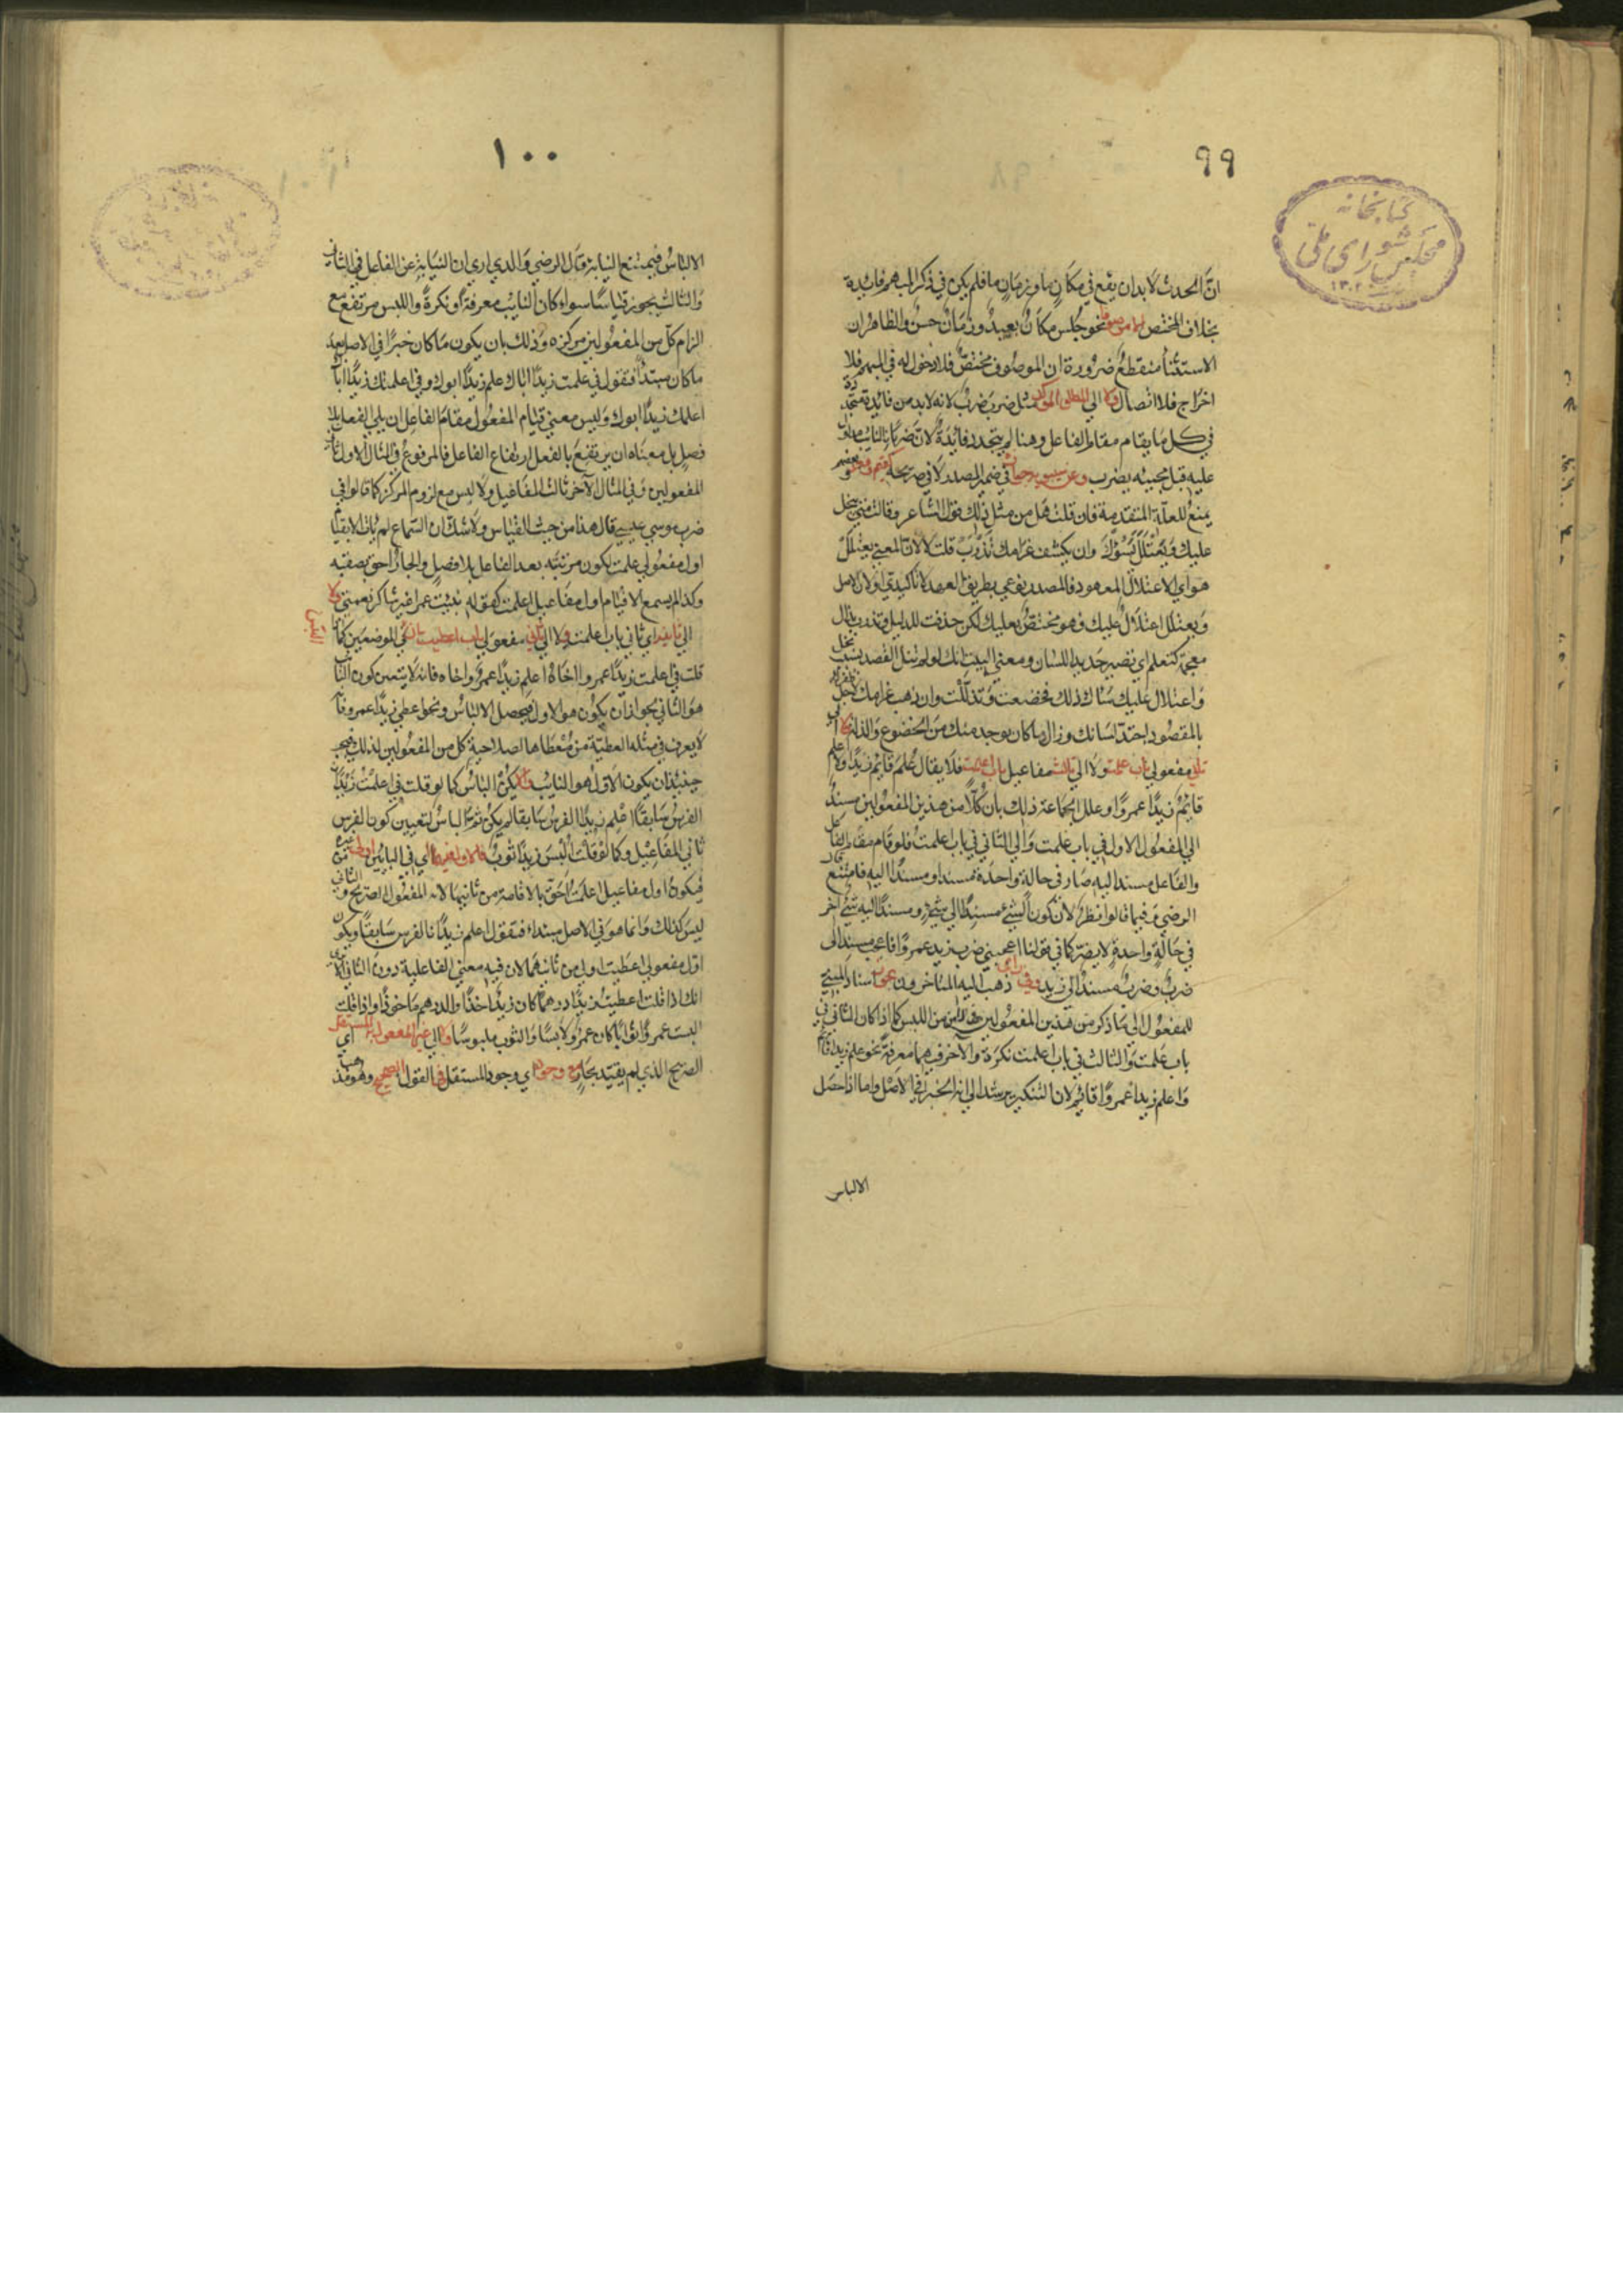 ٩٩
كتابخانه
مجلس شورای ملی
انّ الحدث لا بد ان يقع في مكان ما وزمان ما فلم يكن في ذكر المبهم فائدة
بخلاف المختص نحو جُلس مكانٌ بعيدٌ وزمانٌ حسنٌ والظاهر ان
الاستثناء منقطع ضرورة ان الموصوف مختصّ فلا دخول له في المبهم فلا
اخراج فلا اتصال ولا الي المطلق المؤكد مثل ضرب ضربٌ لانه لا بد من فائدة متجددة
في كل ما يقام مقام الفاعل وهنا لم يتجدد فائدةٌ لانّ ضربًا بالنائب مدلول
عليه قبل مجيئه بضرب وعن سيبويه جوازه في ضمير المصدر لا في صريحه
يمنع للعلّة المتقدمة فان قلت هل من مثل ذلك قول الشاعر وقالت متى يبخل
عليك ويعتلل يسؤك وان يكشف غرامك تدرب قلت لا لانّ المعني يعتلل
هو اي الاعتلال المعهود فالمصدر نوعي بطريق العهد لا تأكيدي او لان الاصل
ويعتلل اعتلال عليك وهو مختصّ بعليك لكن حذفت للدليل وتدرب بدال
معجمة كتعلم اي تصير حديد اللسان ومعني البيت انك لو لم تنل القصد بسبب بخل
واعتلال عليك ساءك ذلك فخضعت وتذللت وان ذهب غرامك لاجل ظفرك
بالمقصود احتدّ لسانك وزال ما كان يوجد منك من الخضوع والذلة ولا الي
ثاني مفعولي باب علمت ولا الي ثالث مفاعيل باب اعلمت فلا يقال عُلم قائمٌ زيدًا ولا اُعلم
قائمٌ زيدًا عمروًا وعلل الجماعة ذلك بان كلًّا من هذين المفعولين مسندٌ
الي المفعول الاول في باب علمت والي الثاني في باب اعلمت فلو قام مقام الفاعل
والفاعل مسند اليه صار في حالة واحدة مسندا ومسندًا اليه فامتنع قال
الرضي وفيما قالوا نظر لأن كون الشيء مسندًا الي شيءٍ ومسندًا اليه شيء آخر
في حالةٍ واحدةٍ لا يضرّ كما في قولنا اعجبني ضرب زيد عمروًا فاعجب مسند الي
ضرب وضرب مسندٌ الي زيد وفي رأي ذهب اليه المتأخرون يجوز اسناد المبني
للمفعول الي ما ذكر من هذين المفعولين حال الأمن من اللبس كما اذا كان الثاني في
باب علمت والثالث في باب اعلمت نكرة والآخر فيهما معرفةً نحو علم زيدا قائم
واعلم زيدا عمروًا قائم لان التنكير يرشد الي انه الخبر في الاصل واما اذا حصل
الالباس
١٠٠
الالباسُ فيمتنع النيابة وقال الرضي والذي اري ان النيابة عن الفاعل في الثاني
والثالث يجوز قياسًا سواءٌ كان النائب معرفة او نكرةً واللبس مرتفع مع
الزام كلّ من المفعولين مركزه وذلك بان يكون ما كان خبرًا في الاصل بعد
ما كان مبتدأً فتقول في علمت زيدًا اباك علم زيدًا ابوك وفي اعلمتك زيدًا اباك
اعلمك زيدًا ابوك وليس معني قيام المفعول مقام الفاعل ان يلي الفعل بلا
فصلٍ بل معناه ان يرتفع بالفعل ارتفاع الفاعل فالمرفوع في المثال الاول ثاني
المفعولين وفي المثال الآخر ثالث المفاعيل ولا لبس مع لزوم المركز كما قالوا في
ضرب موسي عيسي قال هذا من حيث القياس ولا شك ان السماع لم يأت الا بقيام
اول مفعولي علمت لكون مرتبته بعد الفاعل بلا فصلٍ والجار احق بصقبه
وكذا لم يسمع الا قيام اول مفاعيل اعلمت كقوله نبئت عمرا غير شاكر نعمتي ولا
الي ثانيه اي ثاني باب اعلمت ولا الي ثاني مفعولي باب اعطيت مع اللبس في الموضعين كما
قلت في اعلمت زيدًا عمروا اخاه اعلم زيدًا عمروٌ اخاه فانه لا يتعين كون النائب
هو الثاني لجواز ان يكون هو الاول فيحصل الالباس ونحو اعطي زيدًا عمرو فانه
لا يعرف في مثله العطيّة من معطاها لصلاحية كل من المفعولين لذلك فيجب
حينئذ ان يكون الاول هو النائب وان لم يكن الباسٌ كما لو قلت في اعلمت زيدًا
الفرس سابقًا اعلم زيدًا الفرس سابقا لم يكن ثمّ الباسٌ لتعيين كون الفرس
ثاني المفاعيل وكما لو قلت اُلبس زيدًا ثوبٌ فالاول فيهما اي في البابين اولي من غيره
فيكون اول مفاعيل اعلمت احقّ بالاقامة من ثانيها لانه المفعول الصريح والثاني
ليس كذلك وانما هو في الاصل مبتداء فتقول اعلم زيدٌ نا الفرس سابقًا ويكون
اوّل مفعولي اعطيت اولي من ثانيهما لان فيه معني الفاعلية دون الثاني الا تري
انك اذا قلت اعطيت زيدًا درهمًا كان زيدٌ اخذًا والدرهم مأخوذًا واذا قلت
البست عمروًا ثوبًا كان عمرو لابسًا والثوب ملبوسًا ولا الي غير المفعول به المستقل اي
الصريح الذي لم يقيّد بجارٍ مع وجوده اي وجود المستقل في القول الصحيح وهو مذهب